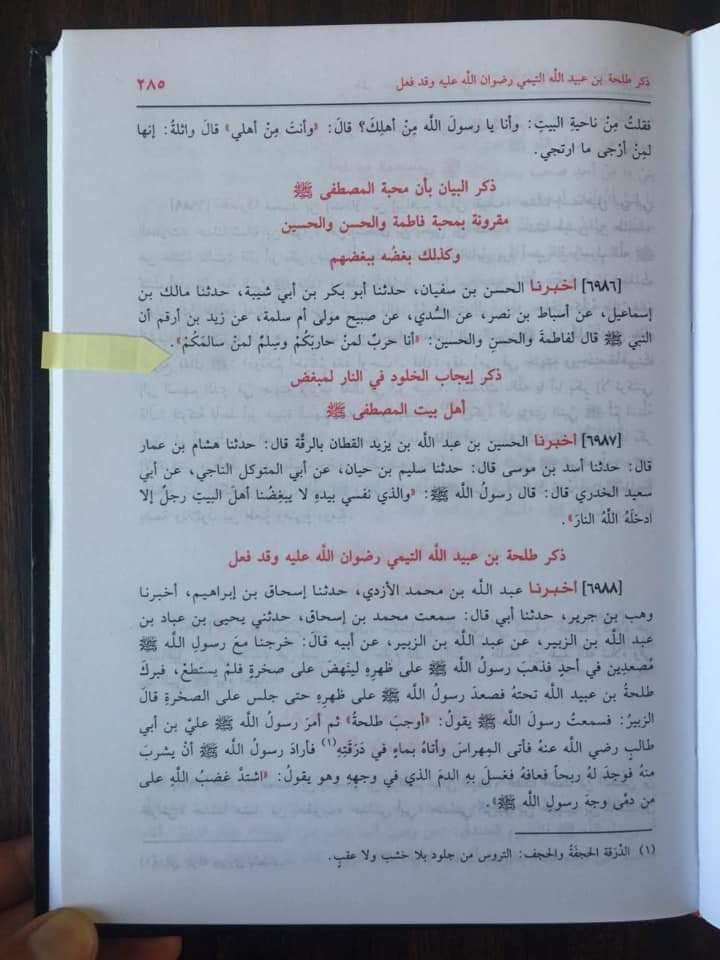 ذكر طلحة بن عبيد الله التيمي رضوان الله عليه وقد فعل ٢٨٥
فقلتُ مِنْ ناحيةِ البيتِ: وأنا يا رسولَ الله مِنْ أهلِكَ؟ قالَ: «وأنتَ مِنْ أهلي» قالَ واثلةُ: إنها
لمِنْ أرْجى ما ارتجي.
ذكر البيان بأن محبة المصطفى ﷺ
مقرونة بمحبة فاطمة والحسن والحسين
وكذلك بغضُه ببغضهم
[٦٩٨٦] أخبرنا الحسن بن سفيان، حدثنا أبو بكر بن أبي شيبة، حدثنا مالك بن
إسماعيل، عن أسباط بن نصر، عن السُّدي، عن صبيح مولى أم سلمة، عن زيد بن أرقم أن
النبي ﷺ قال لفاطمةَ والحسنِ والحسين: «أنا حربٌ لمنْ حاربَكُمْ وَسِلمٌ لمنْ سالمَكُمْ».
ذكر إيجاب الخلود في النار لمبغض
أهل بيت المصطفى ﷺ
[٦٩٨٧] أخبرنا الحسين بن عبد الله بن يزيد القطان بالرقّة قال: حدثنا هشام بن عمار
قال: حدثنا أسد بن موسى قال: حدثنا سليم بن حيان، عن أبي المتوكل الناجي، عن أبي
سعيد الخدري قال: قال رسولُ الله ﷺ: «والذي نفسي بيدهِ لا يبغِضُنا أهلَ البيتِ رجلٌ إلا
ادخلَهُ اللَّهُ النارَ».
ذكر طلحة بن عبيد الله التيمي رضوان الله عليه وقد فعل
[٦٩٨٨] أخبرنا عبد الله بن محمد الأزدي، حدثنا إسحاق بن إبراهيم، أخبرنا
وهب بن جرير، حدثنا أبي قال: سمعت محمد بن إسحاق، حدثني يحيى بن عباد بن
عبد الله بن الزبير، عن عبد الله بن الزبير، عن أبيه قالَ: خرجنا معَ رسولِ الله ﷺ
مُصعدِين في أحدٍ فذهبَ رسولُ الله ﷺ على ظهرِهِ لينْهضَ على صخرةٍ فلمْ يستطعْ، فبركَ
طلحةُ بن عبيد الله تحتهُ فصعدَ رسولُ الله ﷺ على ظهرِهِ حتى جلسَ على الصخرةِ قالَ
الزبيرُ: فسمعتُ رسولَ الله ﷺ يقولُ: «أوجبَ طلحةُ» ثم أمرَ رسولُ الله ﷺ عليَّ بن أبي
طالبٍ رضي اللَّه عنهُ فأتى المِهراسَ وأتاهُ بماءٍ في دَرَقَتِهِ(١) فأرادَ رسولُ الله ﷺ أنْ يشربَ
منهُ فوجدَ لهُ ريحاً فعافهُ فغسلَ بهِ الدمَ الذي في وجههِ وهو يقولُ: «اشتدَّ غضبُ اللَّهِ على
من دمَّى وجهَ رسولِ الله ﷺ».
(١) الدَّرَقة الحجفَةُ والحجف: التروس من جلود بلا خشب ولا عقبٍ.